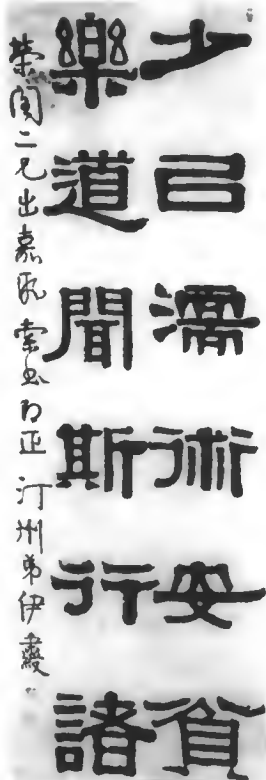 少㠯濡術安貧
樂道聞斯行諸
二兄出嘉紙索書正 汀州弟伊秉綬